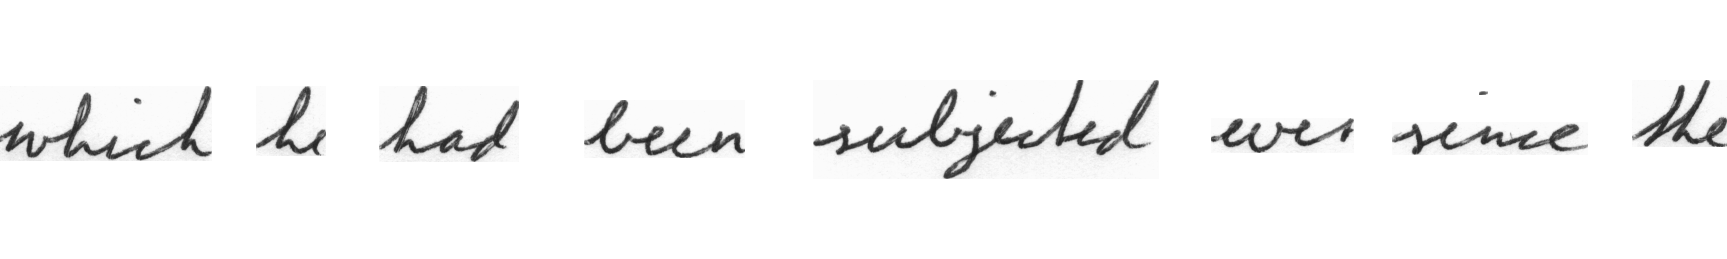 which he had been subjected ever since the